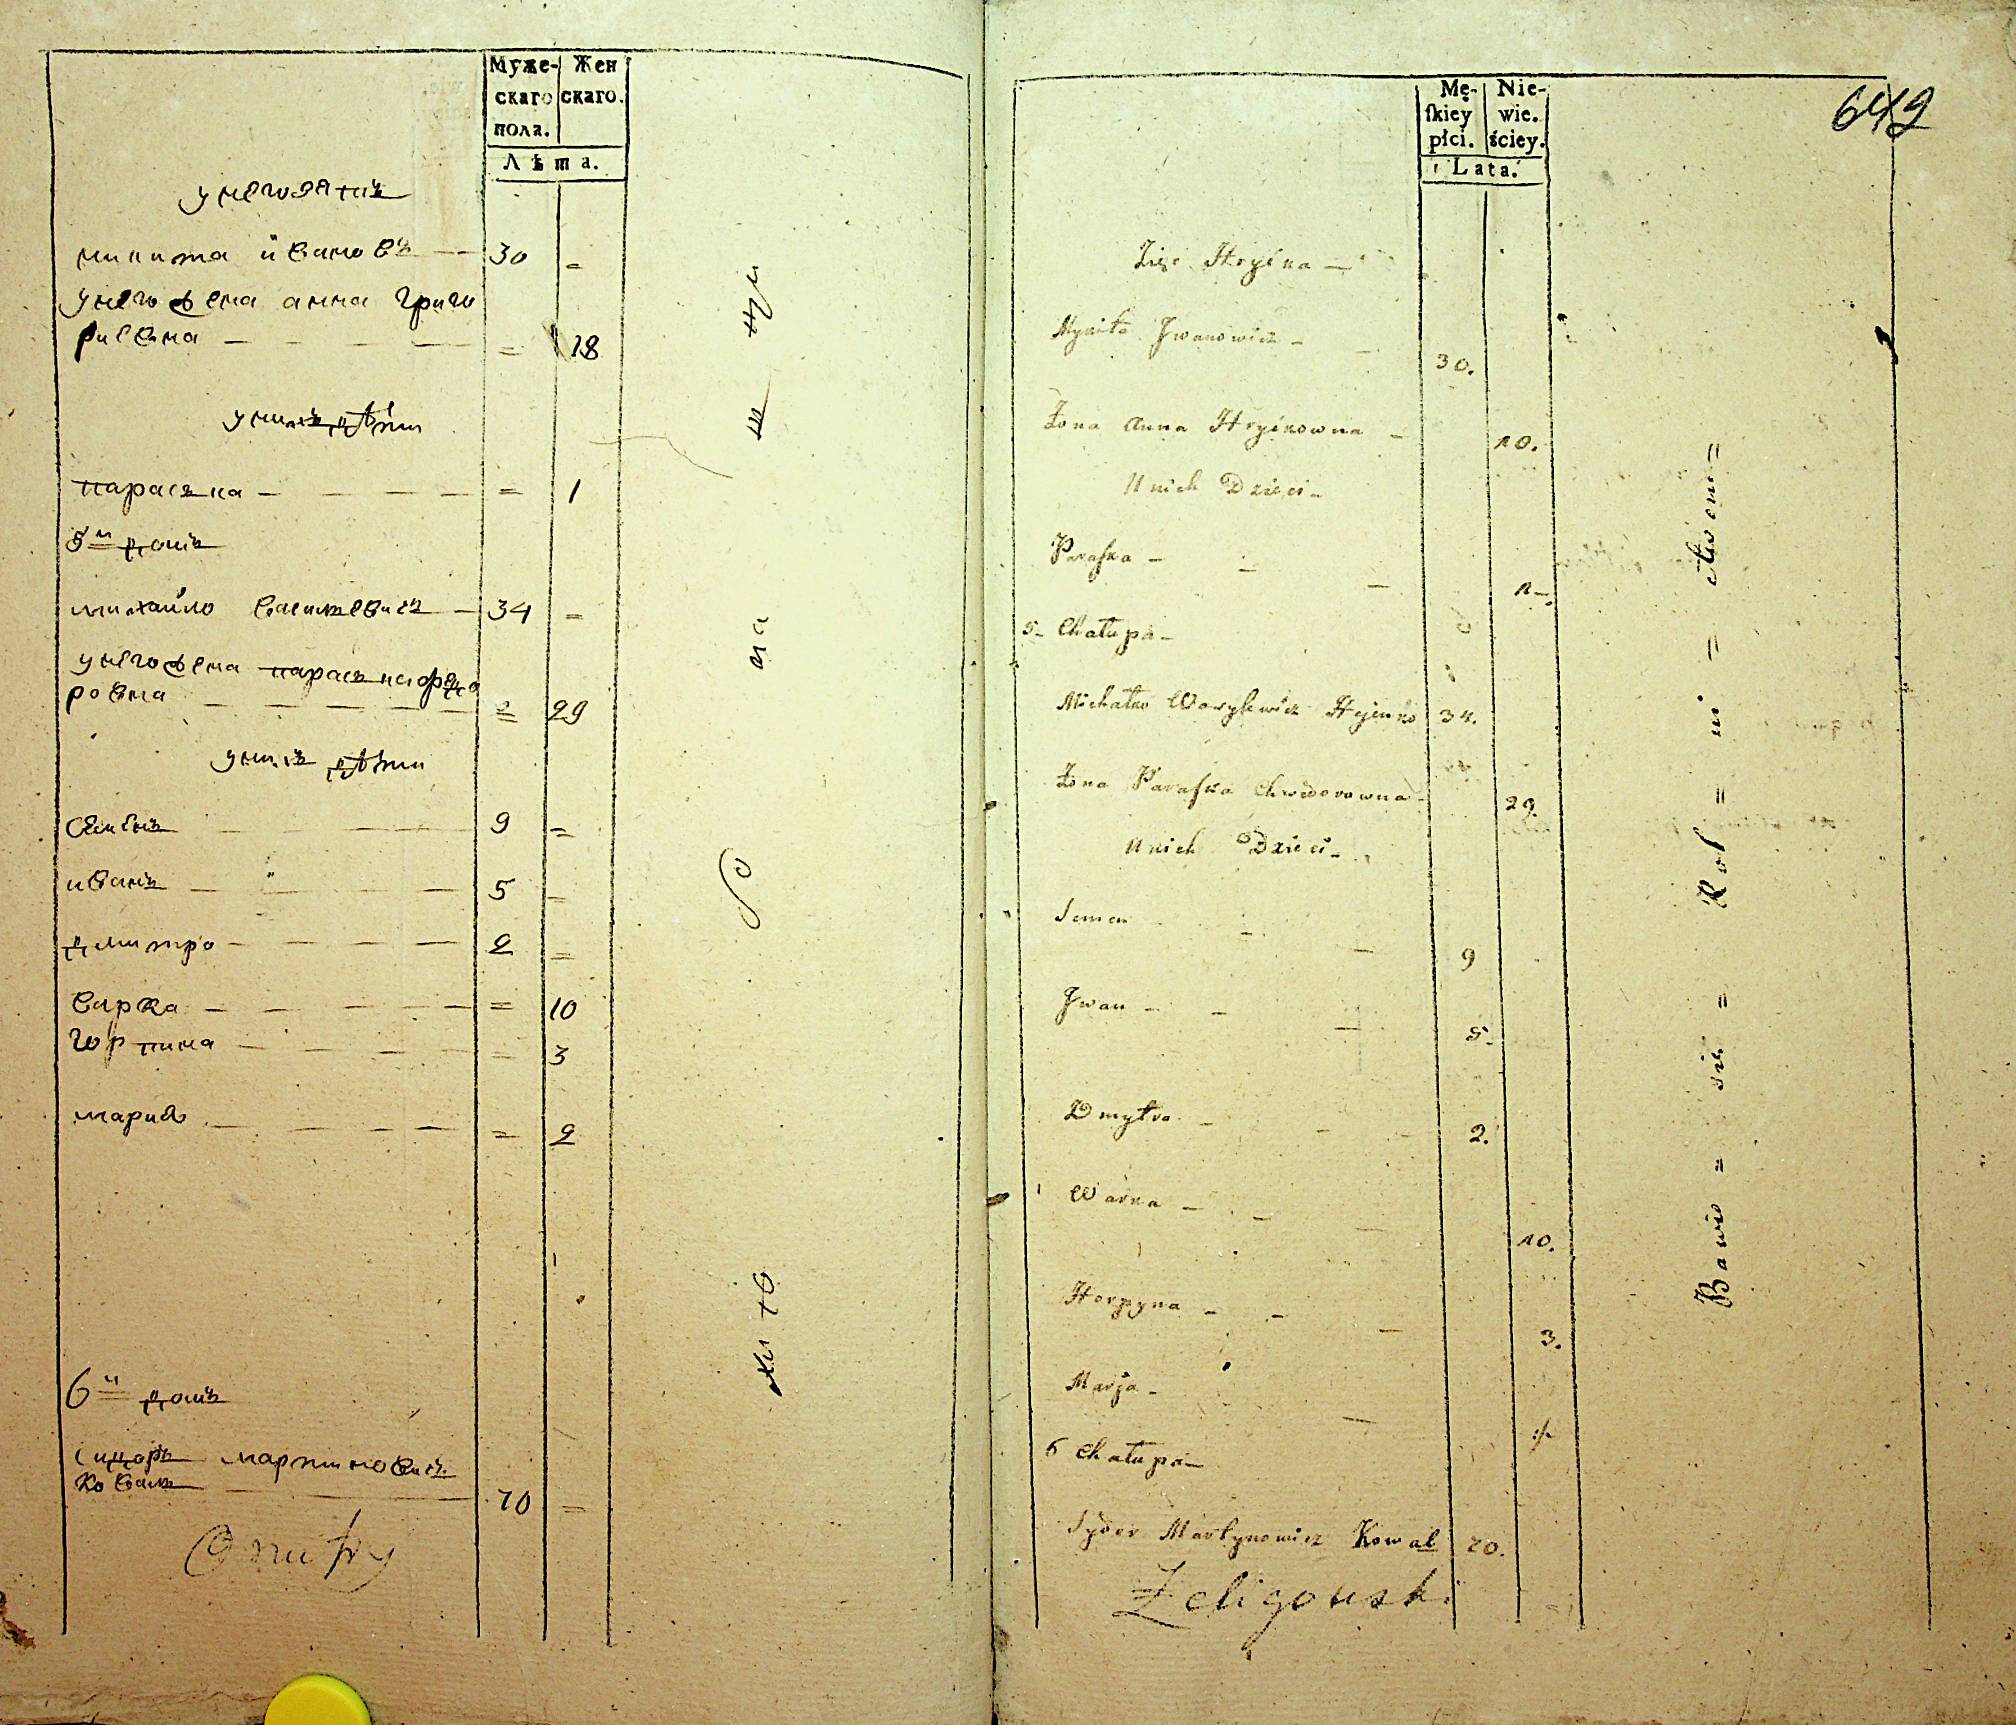 Муже-
скаго
пола.
Жен
скаго.
Лѣта.
унего зять
микита ивановъ 30 =
унего жена анна григо
риевна = 18
унихъ дѣти
параська = 1
5й домъ
михайло василевичъ 34 =
унего жена параська федо
ровна = 29
унихъ дѣти
семенъ 9 =
иванъ 5
дмитро 2 =
варка = 10
горпина 3
мария = 2
6й домъ
сидоръ мартиновичъ
коваль 70 =
Onufry
Mę-
ſkiey
płci.
Nie-
wie.
ściey.
Lata.
642
Zięć Hryćka
Mykita Jwanowicz 30.
Żona Anna Hryckowna 18.
U nich Dzieci
Paraſka 1
5 Chałupa
Michałko Wasylewicz 34.
Żona Paraſka Chwedorowna 29.
U nich Dzieci
Semen 9
Jwan 5.
Dmytro 2.
Warka 10.
Horpyna 3.
Marja
6 Chałupa
Sydor Martynowicz Kowal 70.
Żeligowski
Bawio = sie = Rol = ni = ctwem =